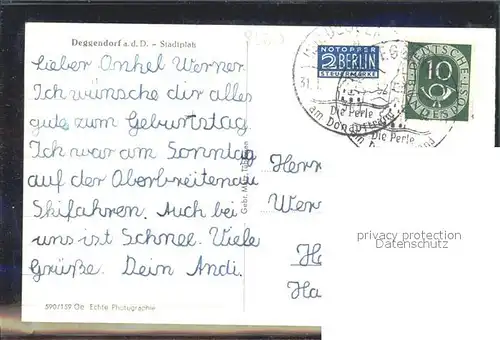 Deggendorf a.d.D. – Stadtplatz
Lieber Onkel Werner.
Ich wünsche dir alles
gute zum Geburtstag.
Ich war am Sonntag
auf der Oberbreitenau
Skifahren. Auch bei
uns ist Schnee. Viele
Grüße. Dein Andi.
590/159 Oe Echte Photographie
Gebr. Metz, Tübingen
NOTOPFER
2 BERLIN
STEUERMARKE
10
DEUTSCHE BUNDESPOST
31.1.
Die Perle
am Donaustrand
Die Perle
am
Herr
Wer
Ha
privacy protection
Datenschutz